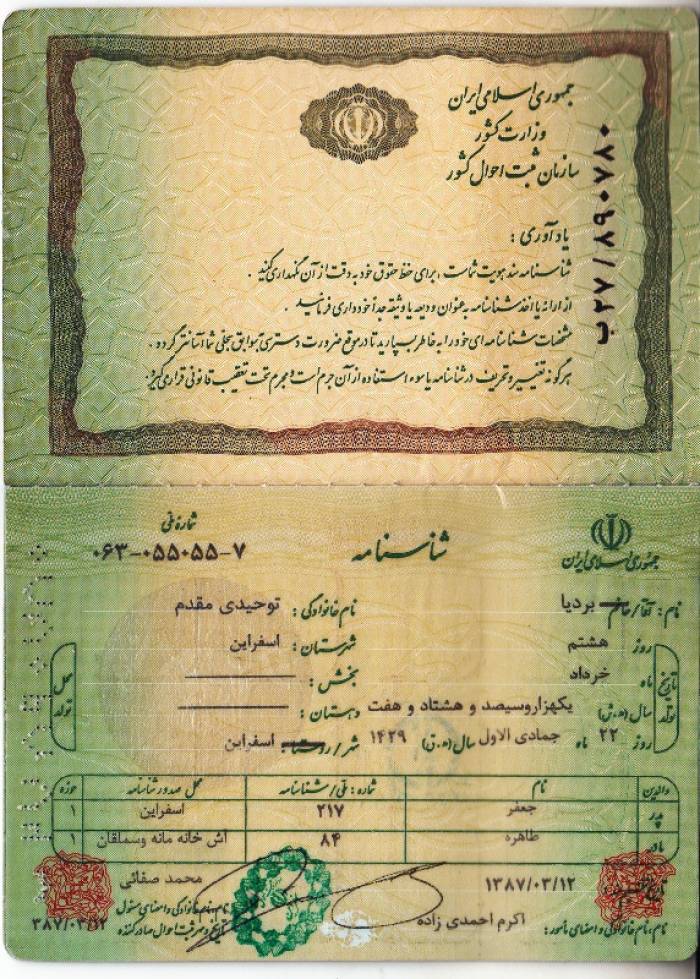 جمهوری اسلامی ایران
وزارت کشور
سازمان ثبت احوال کشور
ب۲۷/۸۹۰۷۸۸۰
یادآوری :
شناسنامه سند هویت شماست ، برای حفظ حقوق خود به دقت از آن نگهداری کنید .
از ارائه یا اخذ شناسنامه به عنوان ودیعه یا وثیقه جداً خودداری فرمائید .
مشخصات شناسنامه ای خود را به خاطر بسپارید تا در موقع ضرورت دسترسی به سوابق سجلی شما آسانتر گردد .
هرگونه تغییر و تحریف در شناسنامه یا سوء استفاده از آن جرم است و مجرم تحت تعقیب قانونی قرار می گیرد .
جمهوری اسلامی ایران
شناسنامه
شماره ملی
۰۶۳-۰۵۵۰۵۵-۷
نام : آقا/خانم بردیا
نام خانوادگی : توحیدی مقدم
تاریخ تولد
روز هشتم
ماه خرداد
سال (ه.ش) یکهزاروسیصد و هشتاد و هفت
روز ۲۲ ماه جمادی الاول سال (ه.ق) ۱۴۲۹
محل تولد
شهرستان : اسفراین
بخش :
دهستان :
شهر/روستا : اسفراین
والدین نام شماره : ملی/شناسنامه محل صدور شناسنامه حوزه
پدر جعفر ۲۱۷ اسفراین ۱
مادر طاهره ۸۴ اش خانه مانه وسملقان ۱
۱۳۸۷/۰۳/۱۲
نام ، نام خانوادگی و امضای مأمور : اکرم احمدی زاده
محمد صفائی
نام ، نام خانوادگی و امضای مسئول
تاریخ و مهر ثبت احوال صادرکننده
۳۸۷/۰۳/۱۲